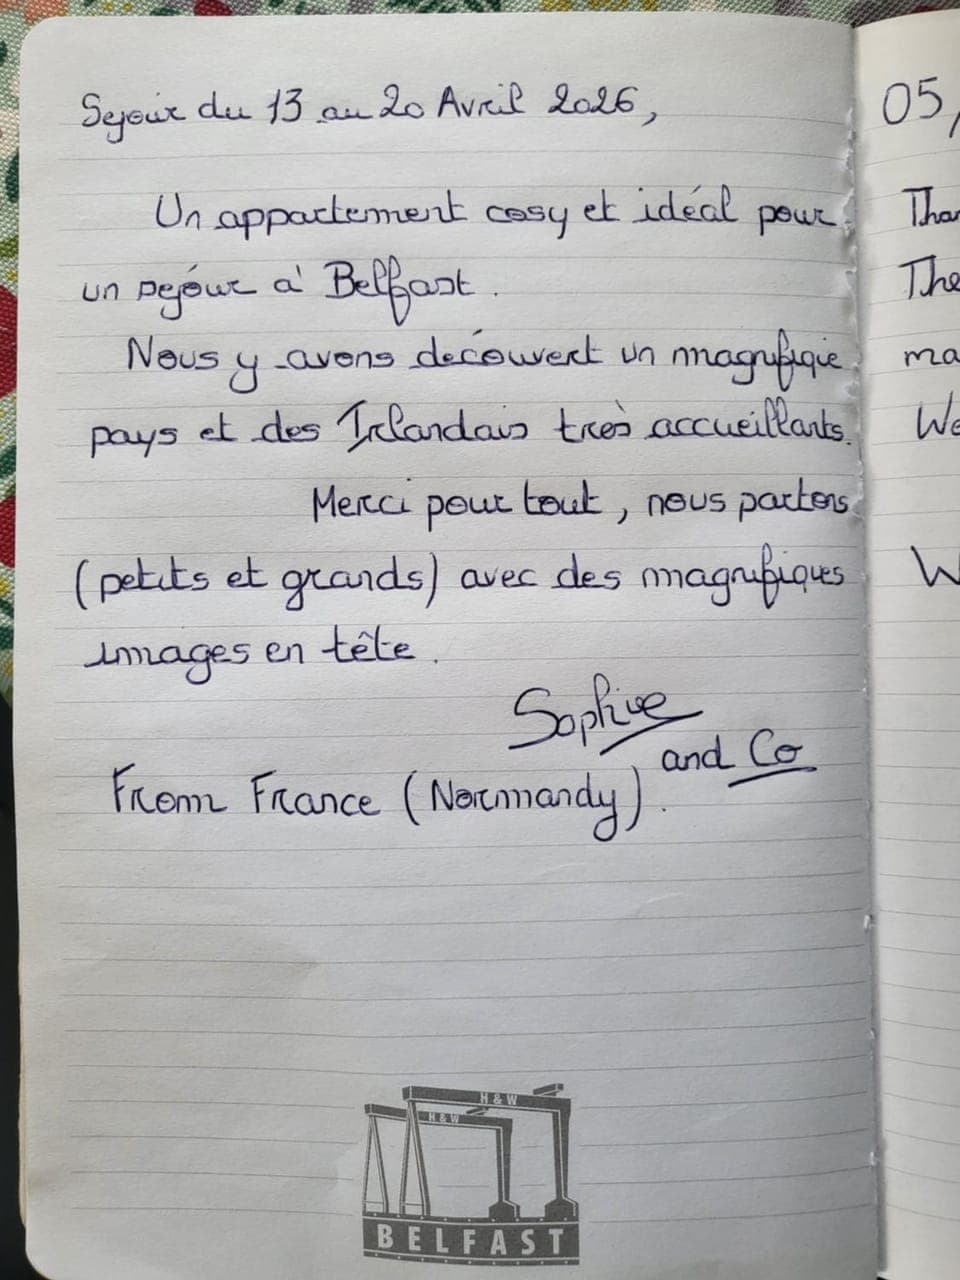 Sejour du 13 au 20 Avril 2026,
Un appartement cosy et idéal pour
un séjour à Belfast.
Nous y avons découvert un magnifique
pays et des Irlandais très accueillants.
Merci pour tout, nous partons
(petits et grands) avec des magnifiques
images en tête.
Sophie
and Co
From France (Normandy).
H & W
H & W
BELFAST
05,
Than
The
ma
We
W